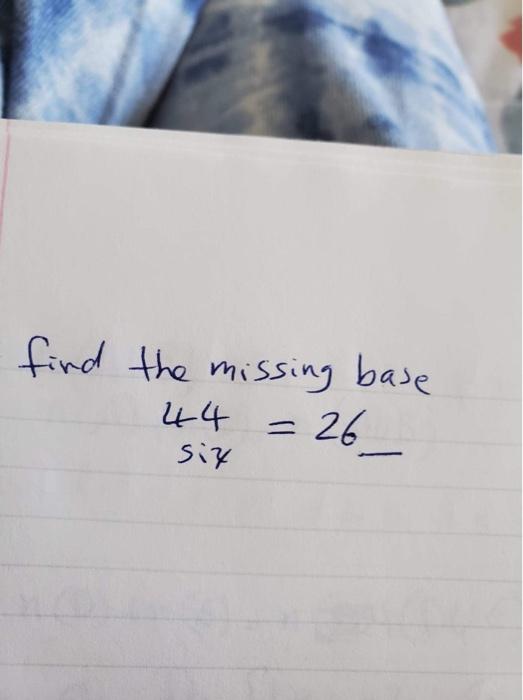 find the missing base
44 = 26_
six